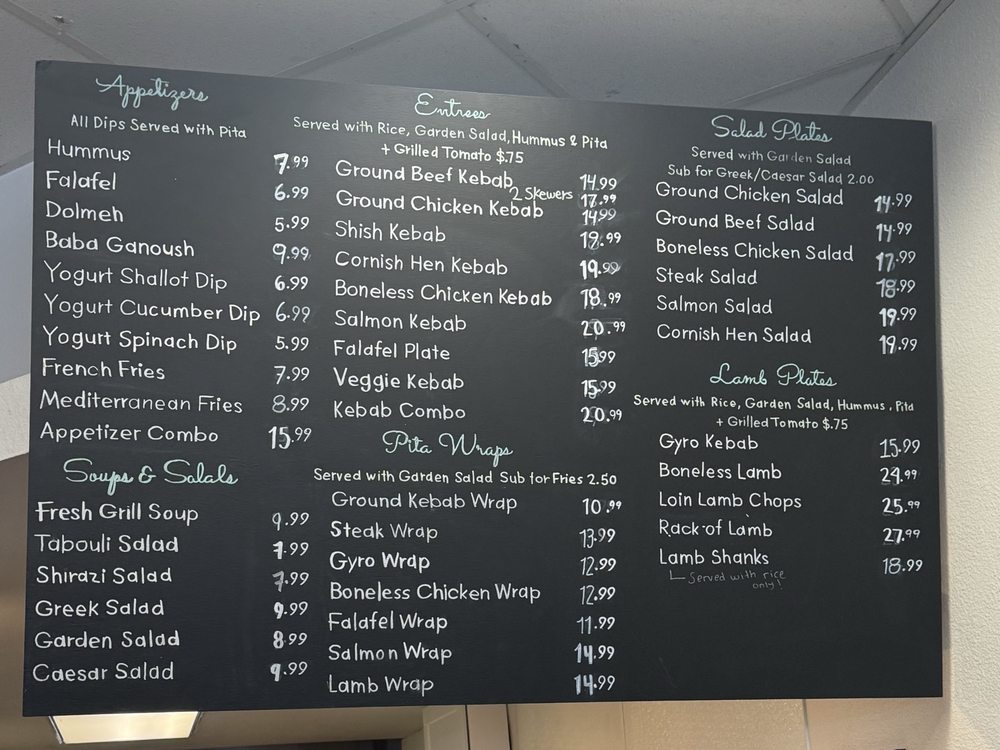 Appetizers
All Dips Served with Pita
Hummus 7.99
Falafel 6.99
Dolmeh 5.99
Baba Ganoush 9.99
Yogurt Shallot Dip 6.99
Yogurt Cucumber Dip 6.99
Yogurt Spinach Dip 5.99
French Fries 7.99
Mediterranean Fries 8.99
Appetizer Combo 15.99
Soups & Salals
Fresh Grill Soup 9.99
Tabouli Salad 7.99
Shirazi Salad 7.99
Greek Salad 9.99
Garden Salad 8.99
Caesar Salad 9.99
Entrees
Served with Rice, Garden Salad, Hummus & Pita
+ Grilled Tomato $.75
Ground Beef Kebab 14.99
2 Skewers 17.99
Ground Chicken Kebab 14.99
Shish Kebab 19.99
Cornish Hen Kebab 19.99
Boneless Chicken Kebab 18.99
Salmon Kebab 20.99
Falafel Plate 15.99
Veggie Kebab 15.99
Kebab Combo 20.99
Pita Wraps
Served with Garden Salad Sub for Fries 2.50
Ground Kebab Wrap 10.99
Steak Wrap 13.99
Gyro Wrap 12.99
Boneless Chicken Wrap 12.99
Falafel Wrap 11.99
Salmon Wrap 14.99
Lamb Wrap 14.99
Salad Plates
Served with Garden Salad
Sub for Greek/Caesar Salad 2.00
Ground Chicken Salad 14.99
Ground Beef Salad 14.99
Boneless Chicken Salad 17.99
Steak Salad 18.99
Salmon Salad 19.99
Cornish Hen Salad 19.99
Lamb Plates
Served with Rice, Garden Salad, Hummus, Pita
+ Grilled Tomato $.75
Gyro Kebab 15.99
Boneless Lamb 24.99
Loin Lamb Chops 25.99
Rack of Lamb 27.99
Lamb Shanks 18.99
Served with rice
only!